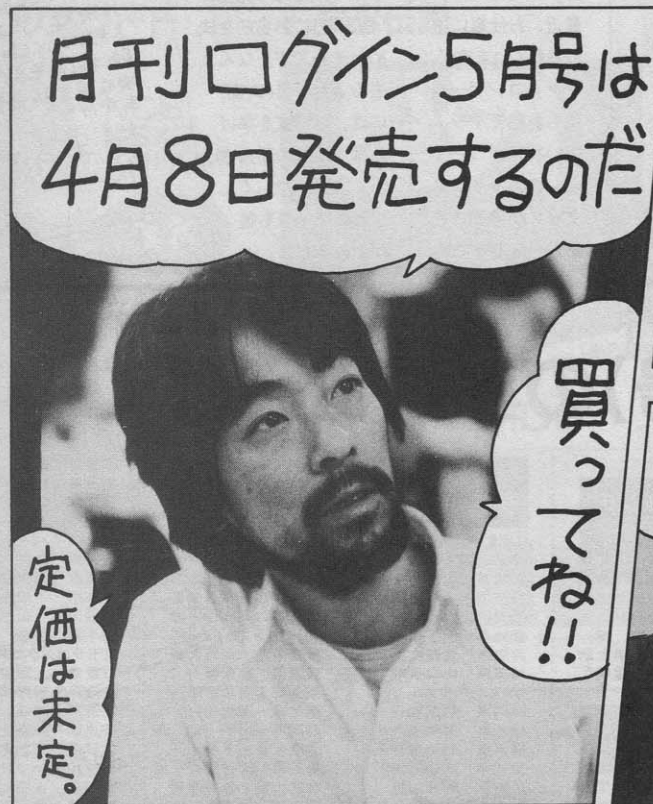 月刊ログイン5月号は
4月8日発売するのだ
買ってね!!
定価は未定。